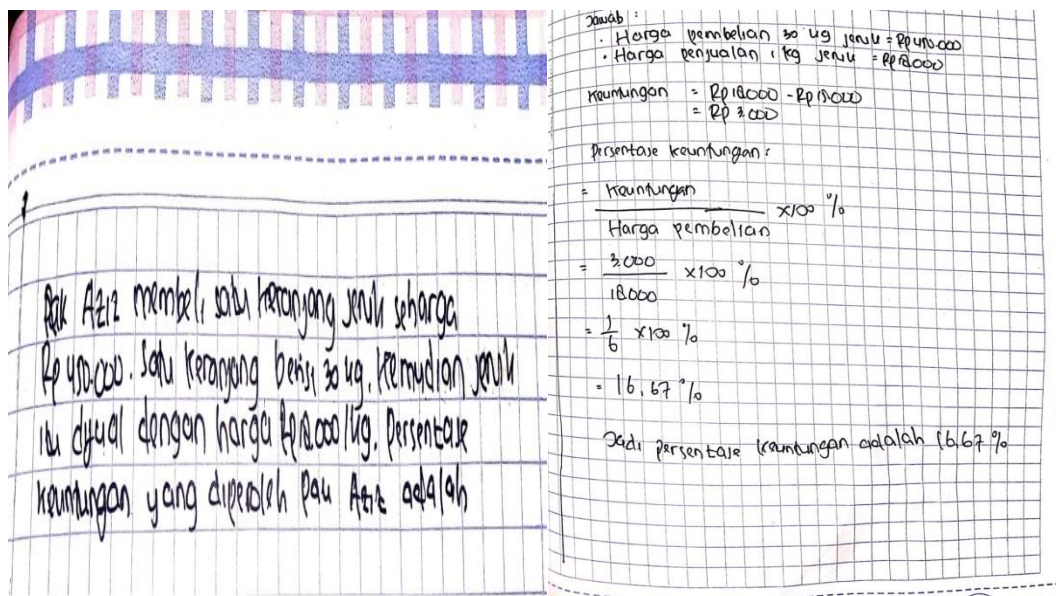 Pak Aziz membeli satu keranjang jeruk seharga
Rp 450.000. Satu keranjang berisi 30 kg. Kemudian jeruk
itu dijual dengan harga Rp18.000/kg. Persentase
keuntungan yang diperoleh pak Aziz adalah
Jawab :
• Harga pembelian 30 kg jeruk = Rp 450.000
• Harga penjualan 1 kg jeruk = Rp18.000
Keuntungan = Rp 18.000 - Rp 15.000
= Rp 3.000
Persentase keuntungan :
= Keuntungan
x100 %
Harga pembelian
= 3.000
x100 %
18.000
= 1/6 x100 %
= 16,67 %
Jadi persentase keuntungan adalah 16,67 %